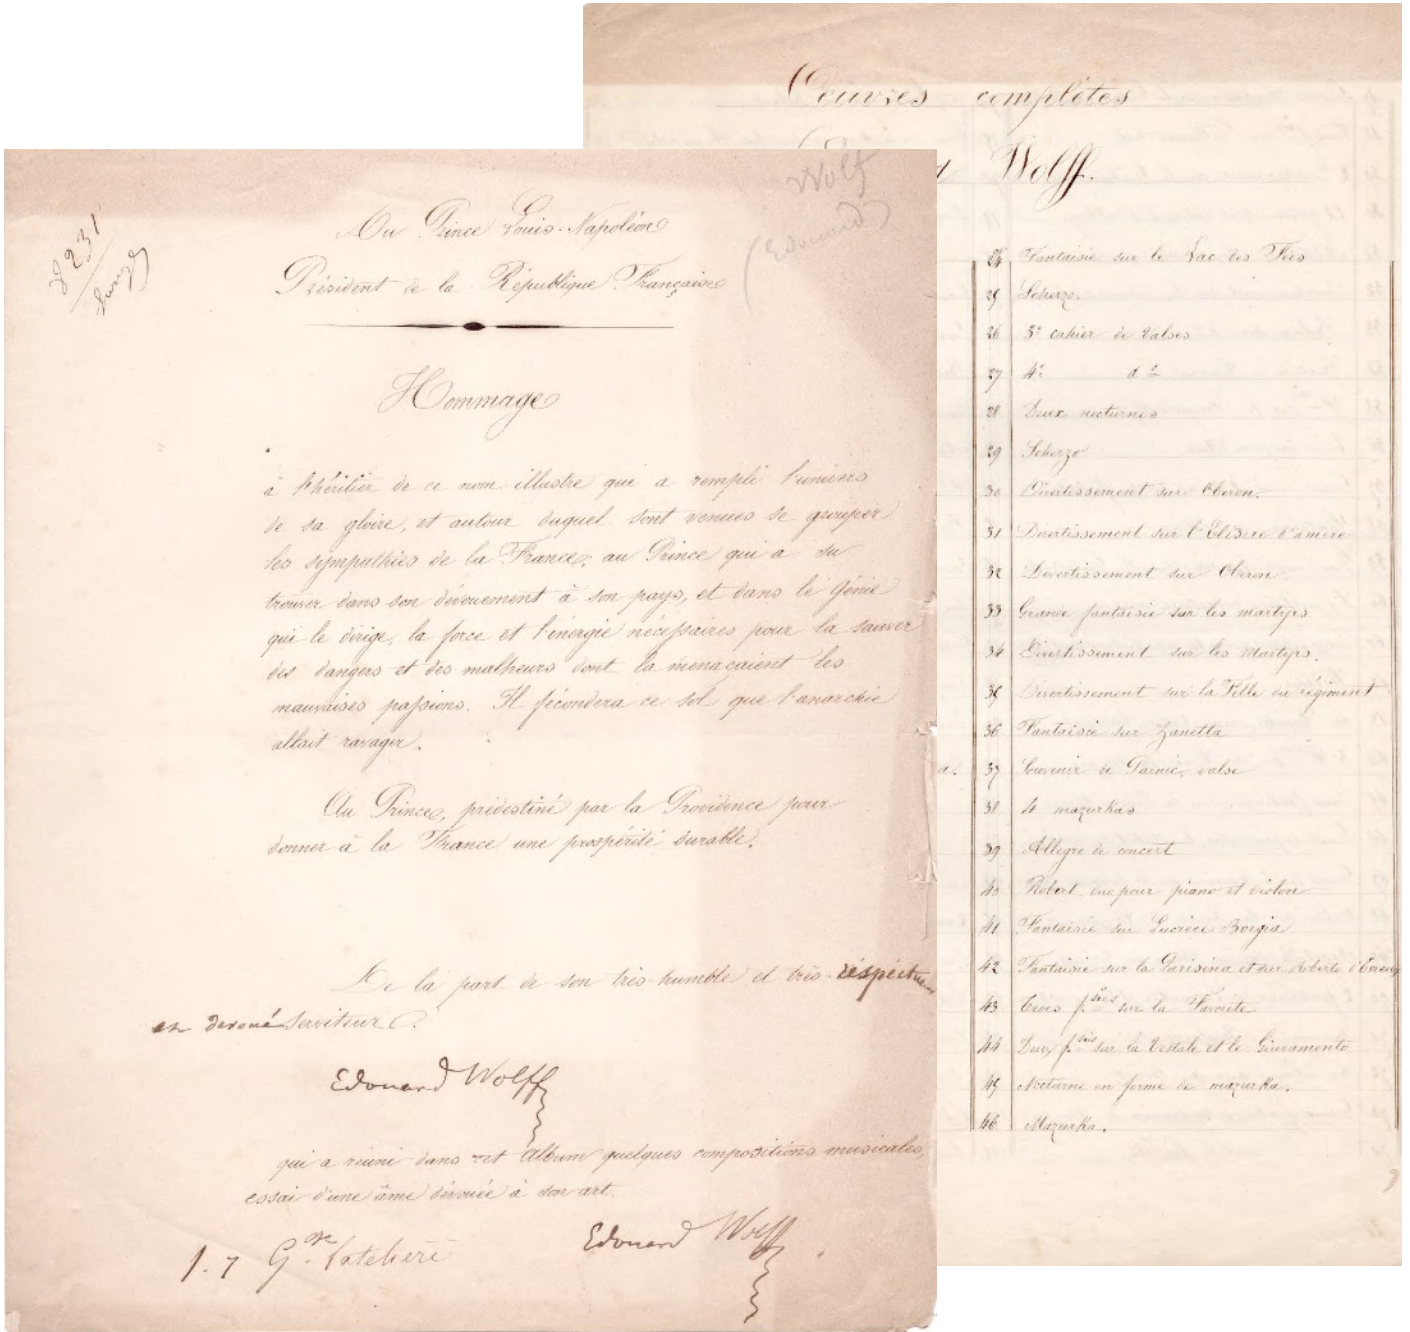 Au Prince Louis-Napoléon
Président de la République Française
Hommage
à l'héritier de ce nom illustre qui a rempli l'univers
de sa gloire, et autour duquel sont venues se grouper
les sympathies de la France; au Prince qui a su
trouver dans son dévouement à son pays, et dans le Génie
qui le dirige, la force et l'énergie nécessaires pour la sauver
des dangers et des malheurs dont la menaçaient les
mauvaises passions. Il fécondera ce sol que l'anarchie
allait ravager.
Au Prince, prédestiné par la Providence pour
donner à la France une prospérité durable.
De la part de son très-humble et très-réspéctueu
et dévoué Serviteur
Edouard Wolff
qui a réuni dans cet Album quelques compositions musicales,
essai d'une âme dévouée à son art.
Edouard Wolff
1.7 Gde
8231
Wolf
(Edouard)
Œuvres complètes
d Wolff.
24 Fantaisie sur le Lac des Fées
25 Scherzo.
26 3e cahier de Valses
27 4e do
28 Deux nocturnes
29 Scherzo
30 Divertissement sur Oberon.
31 Divertissement sur l'Elisire d'amore
32 Divertissement sur Oberon
33 Grande fantaisie sur les martyrs
34 Divertissement sur les Martyrs.
35 Divertissement sur la Fille du régiment
36 Fantaisie sur Zanetta
a. 37 Souvenir de valse
38 4 mazurkas
39 Allegro de concert
40 Robert duo pour piano et violon
41 Fantaisie sur Lucrèce Borgia
42 Fantaisie sur la Parisina et sur Roberto d'Evreux
43 Trois fsies sur la Favorite
44 Deux fsies sur la Vestale et le Giuramento
45 Nocturne en forme de mazurka.
46 Mazurka.